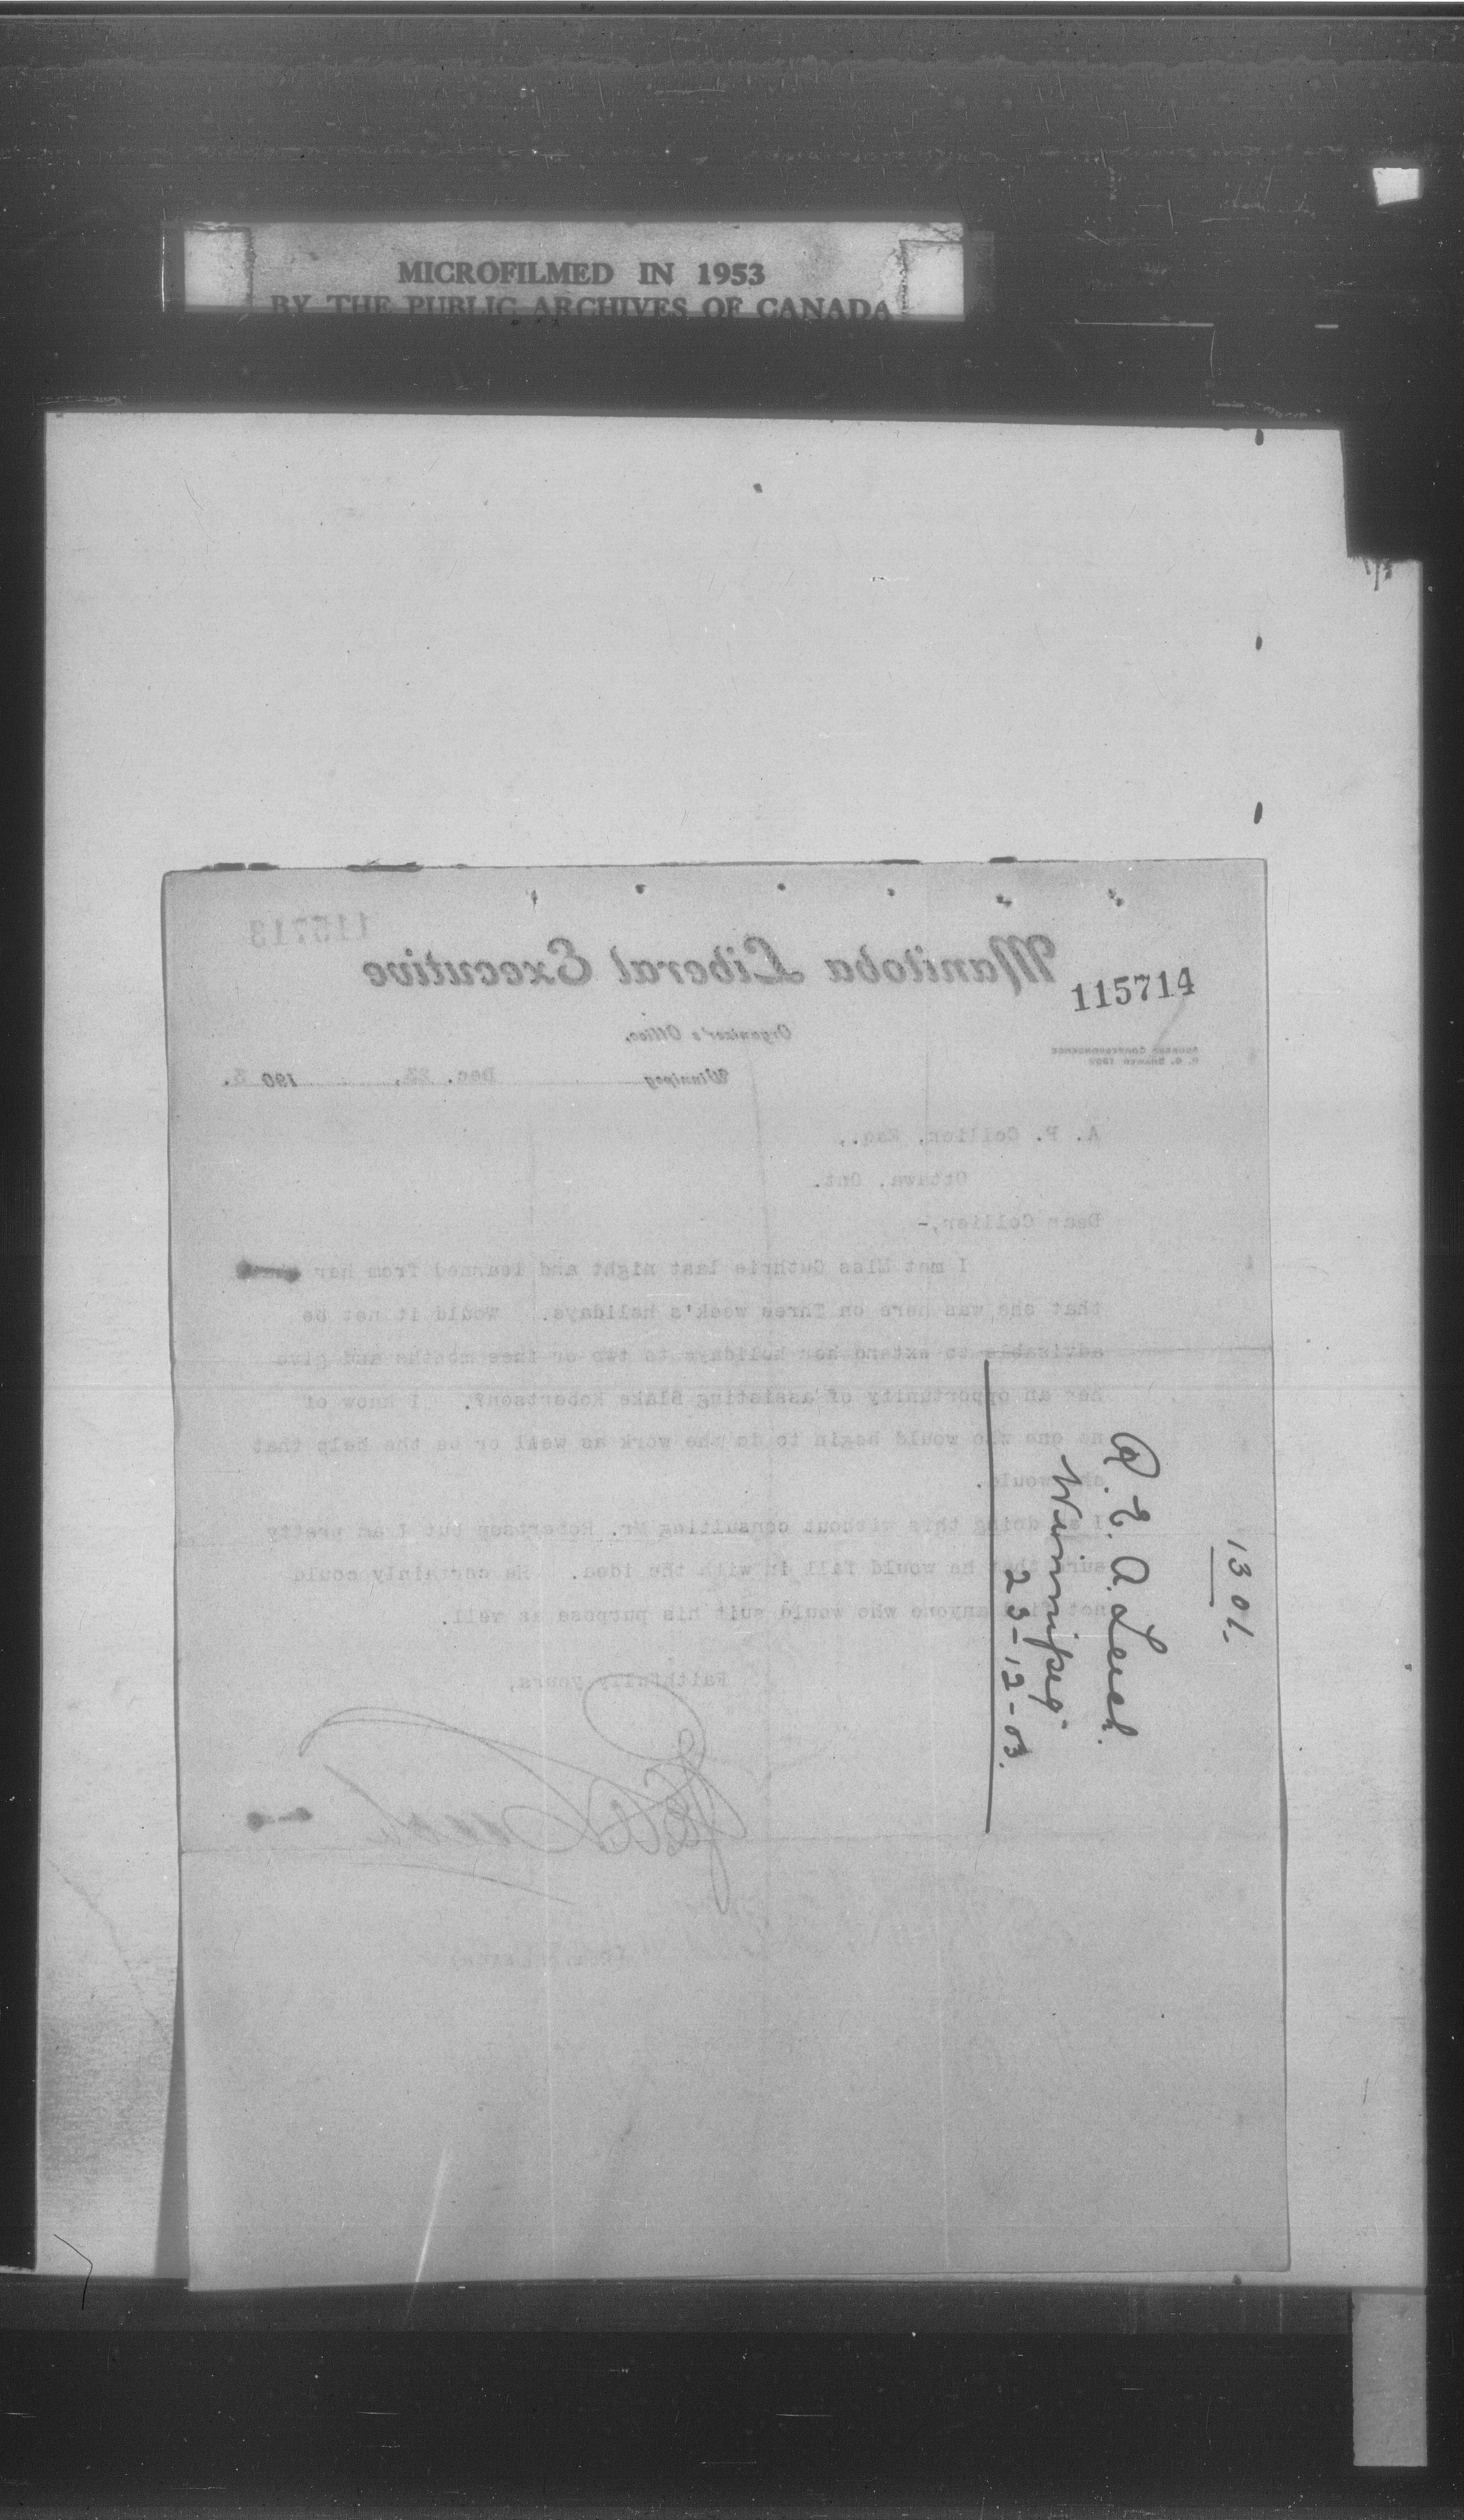 MICROFILMED IN 1953
BY THE PUBLIC ARCHIVES OF CANADA
115713
Manitoba Liberal Executive
115714
Organizer's Office,
ADDRESS CORRESPONDENCE
P. O. DRAWER 1292
Winnipeg Dec. 23, 190 3.
A. P. Collier, Esq.,
Ottawa, Ont.
Dear Collier,-
I met Miss Guthrie last night and learned from her
that she was here on Three week's holidays. Would it not be
advisable to extend her holidays to two or thee months and give
her an opportunity of assisting Blake Robertson?. I know of
no one who would begin to do the work as well or be the help that
she would.
I am doing this without consulting Mr. Robertson but I am pretty
sure that he would fall in with the idea. He certainly could
not find anyone who would suit his purpose as well.
Faithfully yours,
R. E. A. Leech.
Winnipeg
23-12-03.
1301.